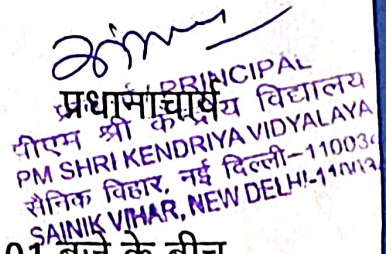 प्रधानाचार्य
PRINCIPAL
पीएम श्री केन्द्रीय विद्यालय
PM SHRI KENDRIYA VIDYALAYA
सैनिक विहार, नई दिल्ली-11003
SAINIK VIHAR, NEW DELHI-
01 बजे के बीच